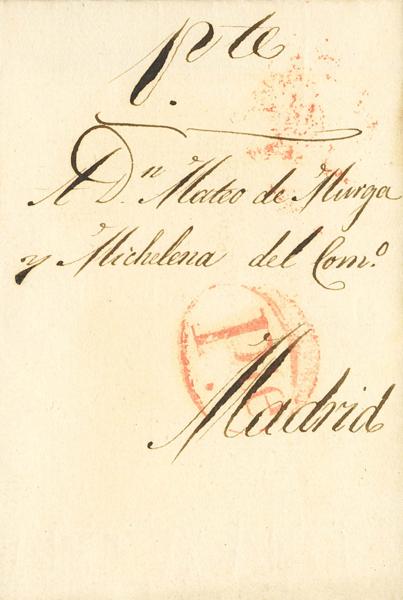 p.te
A D.n Mateo de Murga
y Michelena del Com.o
Madrid